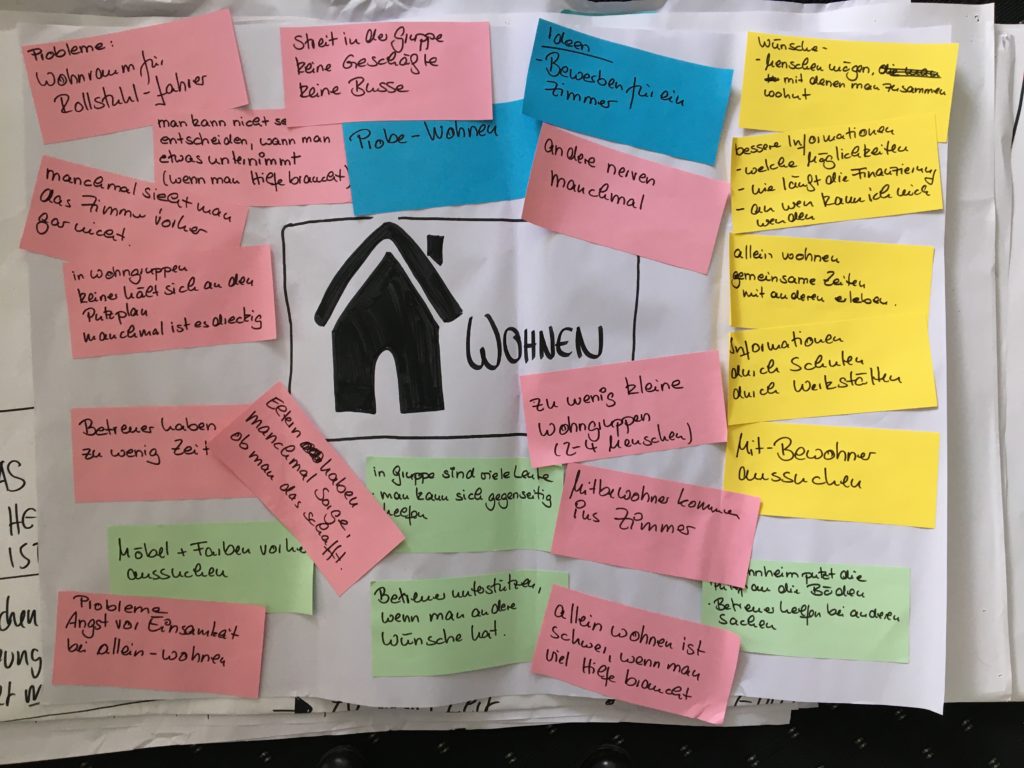 Probleme:
Wohnraum für
Rollstuhl-fahrer
Streit in der Gruppe
keine Geschäfte
keine Busse
Ideen
- Bewerben für ein
Zimmer
Wünsche -
- Menschen mögen,
mit denen man zusammen
wohnt
man kann nicht se
entscheiden, wann man
etwas unternimmt
(wenn man Hilfe braucht)
Probe-Wohnen
andere nerven
manchmal
bessere Informationen
- welche Möglichkeiten
- wie läuft die Finanzierung
- an wen kann ich mich
wenden
manchmal sieht man
das Zimmer vorher
gar nicht.
in Wohngruppen
keiner hält sich an den
Putzplan
manchmal ist es dreckig
allein wohnen
gemeinsame Zeiten
mit anderen erleben.
WOHNEN
Informationen
durch Schulen
durch Werkstätten
zu wenig kleine
Wohngruppen
(2-4 Menschen)
Betreuer haben
zu wenig Zeit
Eltern haben
manchmal Sorge,
ob man das schafft.
Mit-Bewohner
aussuchen
in Gruppe sind viele Leute
man kann sich gegenseitig
helfen
Mitbewohner kommen
ins Zimmer
Möbel + Farben vorhe
aussuchen
Betreuer unterstützen,
wenn man andere
Wünsche hat.
nnheim putzt die
an die Böden
- Betreuer helfen bei anderen
sachen
Probleme
Angst vor Einsamkeit
bei allein-wohnen
allein wohnen ist
schwer, wenn man
viel Hilfe braucht
AS
HE
IST
chen